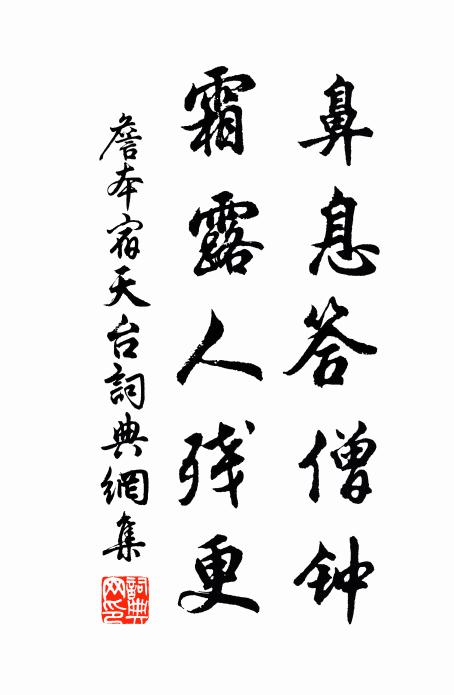 鼻息答僧钟
霜露人残更
詹本宿天台詞典網集
詞典网印